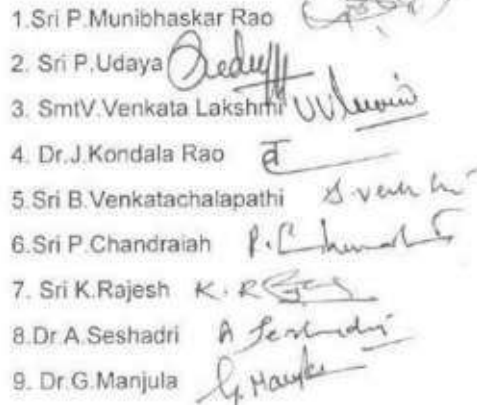 1.Sri P.Munibhaskar Rao
2. Sri P.Udaya
3. SmtV.Venkata Lakshmi
4. Dr.J.Kondala Rao
5.Sri B.Venkatachalapathi
6.Sri P.Chandraiah
7. Sri K.Rajesh K. R
8.Dr.A.Seshadri A Seshadri
9. Dr.G.Manjula